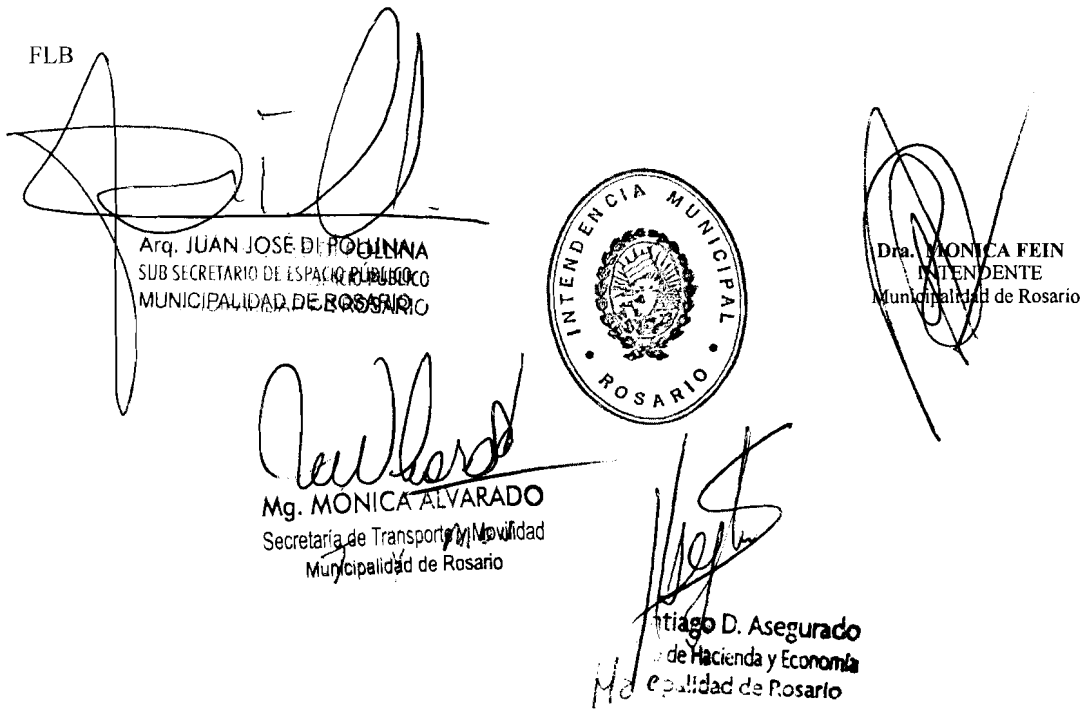 FLB
Arq. JUAN JOSÉ DI POLLINA
SUB SECRETARIO DE ESPACIO PÚBLICO
MUNICIPALIDAD DE ROSARIO
INTENDENCIA MUNICIPAL
• ROSARIO •
Dra. MONICA FEIN
INTENDENTE
Municipalidad de Rosario
Mg. MÓNICA ALVARADO
Secretaría de Transporte y Movilidad
Municipalidad de Rosario
tiago D. Asegurado
de Hacienda y Economía
palidad de Rosario